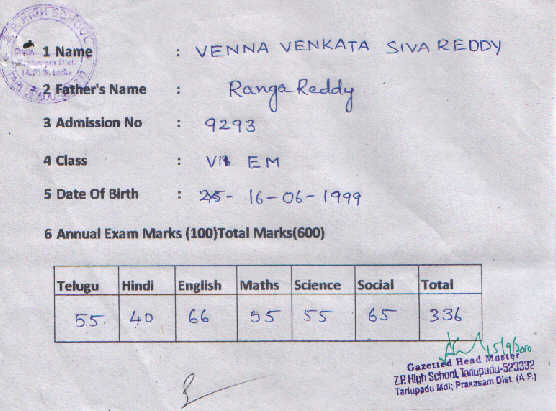 1 Name : VENNA VENKATA SIVA REDDY
2 Father's Name : Ranga Reddy
3 Admission No : 9293
4 Class : VII EM
5 Date Of Birth : 16-06-1999
6 Annual Exam Marks (100)Total Marks(600)
Telugu Hindi English Maths Science Social Total
55 40 66 55 55 65 336
15/9/2010
Gazetted Head Master
Z.P. High School, Tarlupadu-523332
Tarlupadu Mdl; Prakasam Dist. (A.P.)